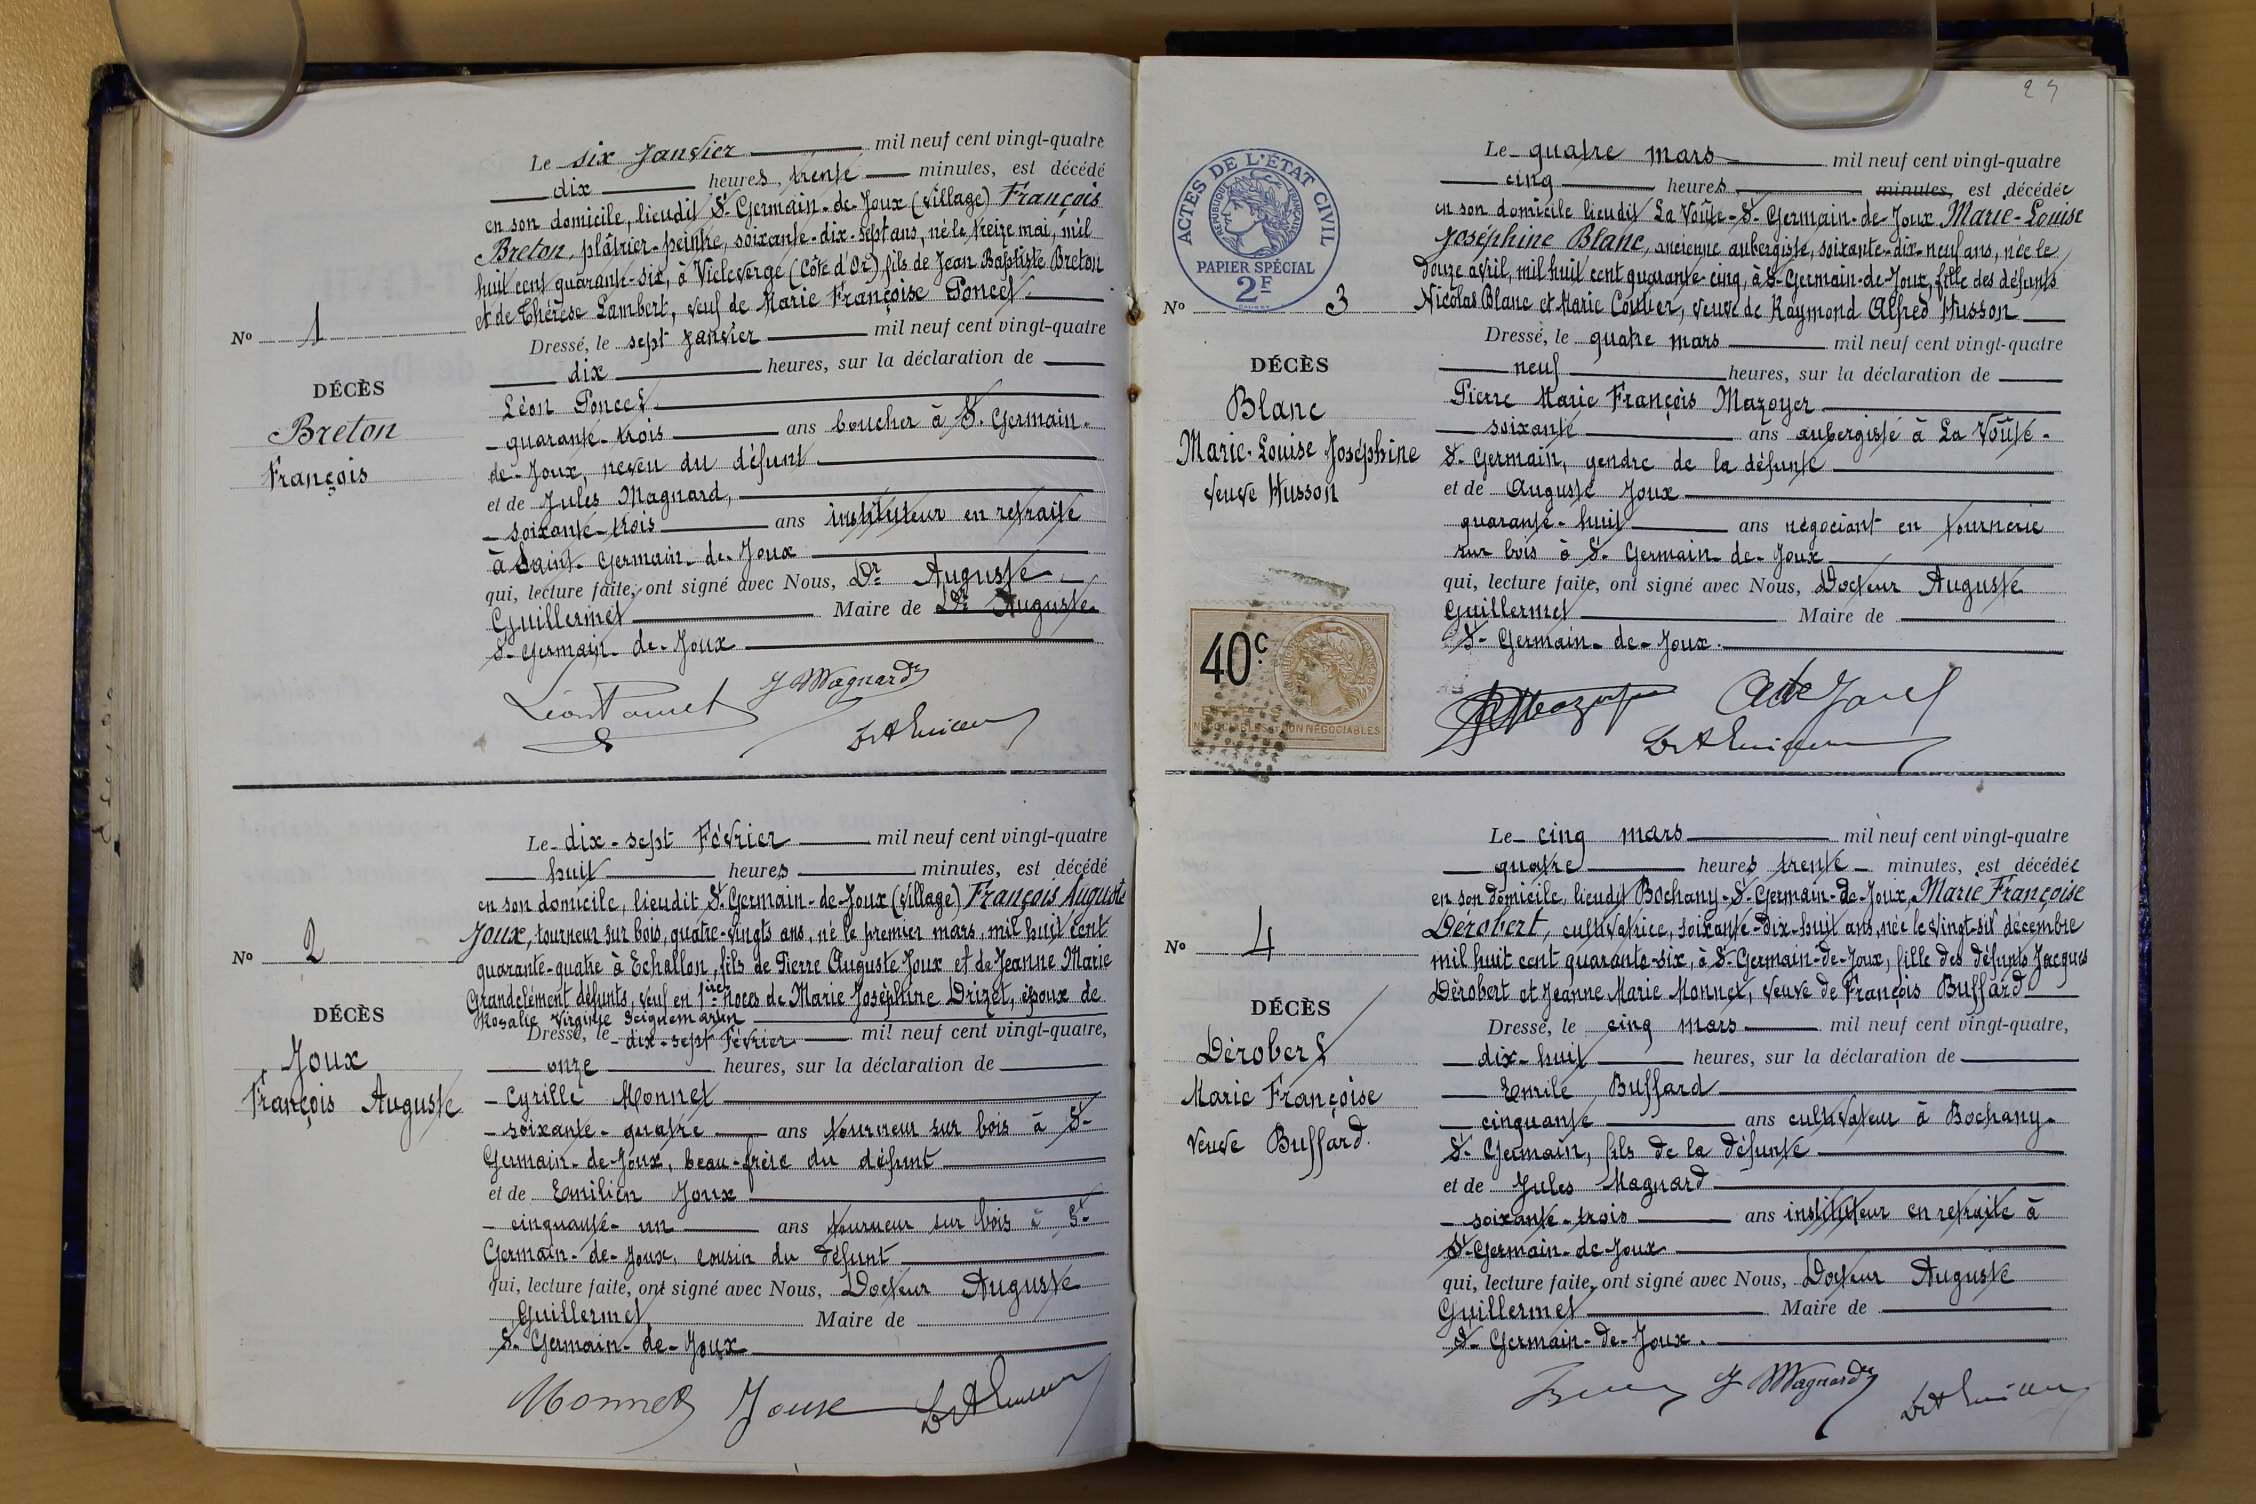 Le six Janvier mil neuf cent vingt-quatre
dix heures, trente minutes, est décédé
en son domicile, lieudit St Germain-de-Joux (village) François
Breton, plâtrier-peintre, soixante-dix-sept ans, né le treize mai, mil
huit cent quarante-six, à Vieleverge (Côte d'Or) fils de Jean Baptiste Breton
et de Thérèse Lambert, veuf de Marie Françoise Poncet.
No 1
Dressé, le sept Janvier mil neuf cent vingt-quatre
dix heures, sur la déclaration de
DÉCÈS
Breton
François
Léon Poncet
quarante-trois ans boucher à St. Germain-
de-Joux, neveu du défunt
et de Jules Magnard,
soixante-trois ans instituteur en retraite
à Saint-Germain-de-Joux
qui, lecture faite, ont signé avec Nous, Dr Auguste
Guillermet Maire de Dr Auguste
St-Germain-de-Joux
Léon Poncet J Magnard
Dr A Guillermet
Le dix-sept Février mil neuf cent vingt-quatre
huit heures minutes, est décédé
en son domicile, lieudit St-Germain-de-Joux (village) François Auguste
Joux, tourneur sur bois, quatre-vingts ans, né le premier mars, mil huit cent
quarante-quatre à Echallon, fils de Pierre Auguste Joux et de Jeanne Marie
Grandclément défunts, veuf en 1ères noces de Marie Joséphine Drizet, époux de
Rosalie Virginie Seignemartin
No 2
Dressé, le dix-sept Février mil neuf cent vingt-quatre,
onze heures, sur la déclaration de
DÉCÈS
Joux
François Auguste
Cyrille Monnet
soixante-quatre ans tourneur sur bois à St-
Germain-de-Joux, beau-frère du défunt
et de Emilien Joux
cinquante-un ans tourneur sur bois à St-
Germain-de-Joux, cousin du défunt
qui, lecture faite, ont signé avec Nous, Docteur Auguste
Guillermet Maire de
St-Germain-de-Joux
Monnet Joux Dr A Guillermet
ACTES DE L'ÉTAT CIVIL
RÉPUBLIQUE FRANÇAISE
PAPIER SPÉCIAL
2F
Le quatre mars mil neuf cent vingt-quatre
cinq heures minutes, est décédée
en son domicile lieudit La Voûte-St-Germain-de-Joux Marie-Louise
Joséphine Blanc, ancienne aubergiste, soixante-dix-neuf ans, née le
douze avril, mil huit cent quarante-cinq, à St-Germain-de-Joux, fille des défunts
Nicolas Blanc et Marie Coutier, veuve de Raymond Alfred Husson
No 3
Dressé, le quatre mars mil neuf cent vingt-quatre
neuf heures, sur la déclaration de
DÉCÈS
Blanc
Marie-Louise Joséphine
veuve Husson
Pierre Marie François Mazoyer
soixante ans aubergiste à La Voûte-
St-Germain, gendre de la défunte
et de Auguste Joux
quarante-huit ans négociant en tournerie
sur bois à St-Germain-de-Joux
qui, lecture faite, ont signé avec Nous, Docteur Auguste
Guillermet Maire de
St-Germain-de-Joux.
40c
NÉGOCIABLES ET NON NÉGOCIABLES
Mazoyer
Dr A Guillermet
Le cinq mars mil neuf cent vingt-quatre
quatre heures trente minutes, est décédée
en son domicile, lieudit Bochany-St-Germain-de-Joux, Marie Françoise
Dérobert, cultivatrice, soixante-dix-huit ans, née le vingt-six décembre
mil huit cent quarante-six, à St-Germain-de-Joux, fille des défunts Jacques
Dérobert et Jeanne Marie Monnet, veuve de François Buffard
No 4
Dressé, le cinq mars mil neuf cent vingt-quatre,
dix-huit heures, sur la déclaration de
DÉCÈS
Dérobert
Marie Françoise
veuve Buffard.
Emile Buffard
cinquante ans cultivateur à Bochany-
St-Germain, fils de la défunte
et de Jules Magnard
soixante-trois ans instituteur en retraite à
St-Germain-de-Joux
qui, lecture faite, ont signé avec Nous, Docteur Auguste
Guillermet Maire de
St-Germain-de-Joux.
J Magnard Dr A Guillermet